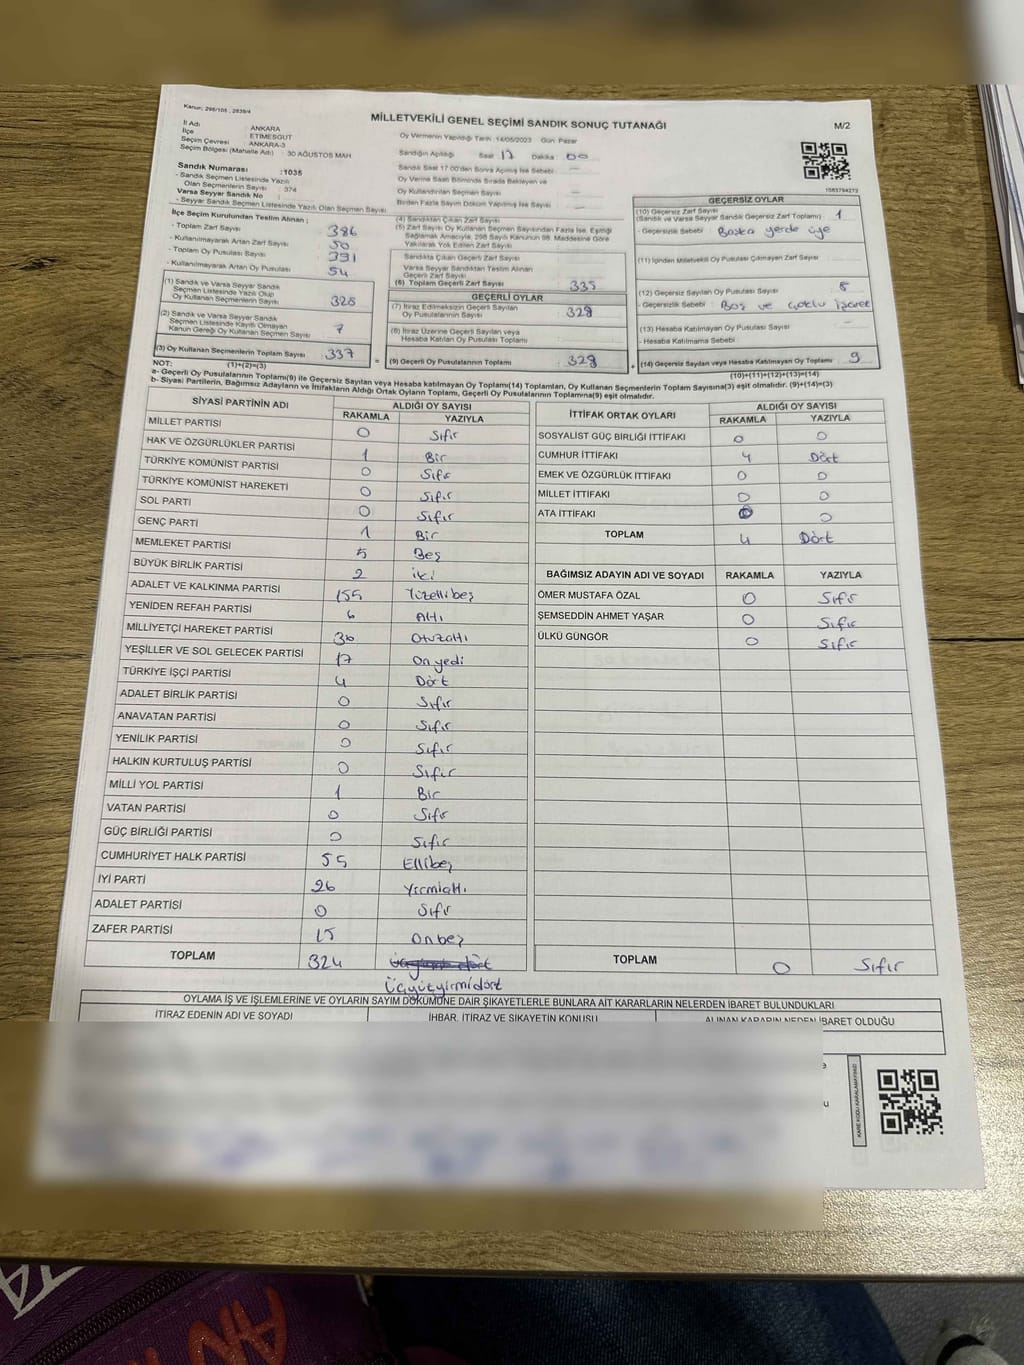 Kanun; 298/105 , 2839/4
MİLLETVEKİLİ GENEL SEÇİMİ SANDIK SONUÇ TUTANAĞI
M/2
İl Adı : ANKARA
İlçe : ETİMESGUT
Seçim Çevresi : ANKARA-3
Seçim Bölgesi (Mahalle Adı) : 30 AĞUSTOS MAH
Sandık Numarası :1035
- Sandık Seçmen Listesinde Yazılı
Olan Seçmenlerin Sayısı : 374
Varsa Seyyar Sandık No :
- Seyyar Sandık Seçmen Listesinde Yazılı Olan Seçmen Sayısı
Oy Vermenin Yapıldığı Tarih :14/05/2023 Gün: Pazar
Sandığın Açıldığı Saat : 17 Dakika : 00
Sandık Saat 17:00'den Sonra Açılmış İse Sebebi : —
Oy Verme Saati Bitiminde Sırada Bekleyen ve
Oy Kullandırılan Seçmen Sayısı : —
Birden Fazla Sayım Döküm Yapılmış İse Sayısı : —
1583794273
İlçe Seçim Kurulundan Teslim Alınan ;
- Toplam Zarf Sayısı : 386
- Kullanılmayarak Artan Zarf Sayısı : 50
- Toplam Oy Pusulası Sayısı : 391
- Kullanılmayarak Artan Oy Pusulası : 54
(1) Sandık ve Varsa Seyyar Sandık
Seçmen Listesinde Yazılı Olup
Oy Kullanan Seçmenlerin Sayısı :
(2) Sandık ve Varsa Seyyar Sandık
Seçmen Listesinde Kayıtlı Olmayan
Kanun Gereği Oy Kullanan Seçmen Sayısı : 7
(3) Oy Kullanan Seçmenlerin Toplam Sayısı : 337
(1)+(2)=(3)
(4) Sandıktan Çıkan Zarf Sayısı
(5) Zarf Sayısı Oy Kullanan Seçmen Sayısından Fazla İse, Eşitliği
Sağlamak Amacıyla; 298 Sayılı Kanunun 98. Maddesine Göre
Yakılarak Yok Edilen Zarf Sayısı
Sandıkta Çıkan Geçerli Zarf Sayısı
Varsa Seyyar Sandıktan Teslim Alınan
Geçerli Zarf Sayısı
(6) Toplam Geçerli Zarf Sayısı : 335
GEÇERLİ OYLAR
(7) İtiraz Edilmeksizin Geçerli Sayılan
Oy Pusulalarının Sayısı : 328
(8) İtiraz Üzerine Geçerli Sayılan veya
Hesaba Katılan Oy Pusulası Toplamı :
= (9) Geçerli Oy Pusulalarının Toplamı : 328
GEÇERSİZ OYLAR
(10) Geçersiz Zarf Sayısı
(Sandık ve Varsa Seyyar Sandık Geçersiz Zarf Toplamı) : 1
- Geçersizlik Sebebi : Başka yerde üye
(11) İçinden Milletvekili Oy Pusulası Çıkmayan Zarf Sayısı
(12) Geçersiz Sayılan Oy Pusulası Sayısı : 8
- Geçersizlik Sebebi : Boş ve çoklu işaret
(13) Hesaba Katılmayan Oy Pusulası Sayısı : —
- Hesaba Katılmama Sebebi :
+ (14) Geçersiz Sayılan veya Hesaba Katılmayan Oy Toplamı : 9
(10)+(11)+(12)+(13)=(14)
NOT:
a- Geçerli Oy Pusulalarının Toplamı(9) ile Geçersiz Sayılan veya Hesaba katılmayan Oy Toplamı(14) Toplamları, Oy Kullanan Seçmenlerin Toplam Sayısına(3) eşit olmalıdır. (9)+(14)=(3)
b- Siyasi Partilerin, Bağımsız Adayların ve İttifakların Aldığı Ortak Oyların Toplamı, Geçerli Oy Pusulalarının Toplamına(9) eşit olmalıdır.
SİYASİ PARTİNİN ADI ALDIĞI OY SAYISI
RAKAMLA YAZIYLA
MİLLET PARTİSİ 0 Sıfır
HAK VE ÖZGÜRLÜKLER PARTİSİ 1 Bir
TÜRKİYE KOMÜNİST PARTİSİ 0 Sıfır
TÜRKİYE KOMÜNİST HAREKETİ 0 Sıfır
SOL PARTİ 0 Sıfır
GENÇ PARTİ 1 Bir
MEMLEKET PARTİSİ 5 Beş
BÜYÜK BİRLİK PARTİSİ 2 iki
ADALET VE KALKINMA PARTİSİ 155 Yüzellibeş
YENİDEN REFAH PARTİSİ 6 Altı
MİLLİYETÇİ HAREKET PARTİSİ 36 Otuzaltı
YEŞİLLER VE SOL GELECEK PARTİSİ 17 On yedi
TÜRKİYE İŞÇİ PARTİSİ 4 Dört
ADALET BİRLİK PARTİSİ 0 Sıfır
ANAVATAN PARTİSİ 0 Sıfır
YENİLİK PARTİSİ 0 Sıfır
HALKIN KURTULUŞ PARTİSİ 0 Sıfır
MİLLİ YOL PARTİSİ 1 Bir
VATAN PARTİSİ 0 Sıfır
GÜÇ BİRLİĞİ PARTİSİ 0 Sıfır
CUMHURİYET HALK PARTİSİ 55 Ellibeş
İYİ PARTİ 26 Yirmialtı
ADALET PARTİSİ 0 Sıfır
ZAFER PARTİSİ 15 Onbeş
TOPLAM 324
Üçyüzyirmidört
İTTİFAK ORTAK OYLARI ALDIĞI OY SAYISI
RAKAMLA YAZIYLA
SOSYALİST GÜÇ BİRLİĞİ İTTİFAKI 0 0
CUMHUR İTTİFAKI 4 Dört
EMEK VE ÖZGÜRLÜK İTTİFAKI 0 0
MİLLET İTTİFAKI 0 0
ATA İTTİFAKI 0 0
TOPLAM 4 Dört
BAĞIMSIZ ADAYIN ADI VE SOYADI RAKAMLA YAZIYLA
ÖMER MUSTAFA ÖZAL 0 Sıfır
ŞEMSEDDİN AHMET YAŞAR 0 Sıfır
ÜLKÜ GÜNGÖR 0 Sıfır
TOPLAM 0 Sıfır
OYLAMA İŞ VE İŞLEMLERİNE VE OYLARIN SAYIM DÖKÜMÜNE DAİR ŞİKAYETLERLE BUNLARA AİT KARARLARIN NELERDEN İBARET BULUNDUKLARI
İTİRAZ EDENİN ADI VE SOYADI İHBAR, İTİRAZ VE ŞİKAYETİN KONUSU ALINAN KARARIN NEDEN İBARET OLDUĞU
KARE KODU KARALAMAYINIZ!